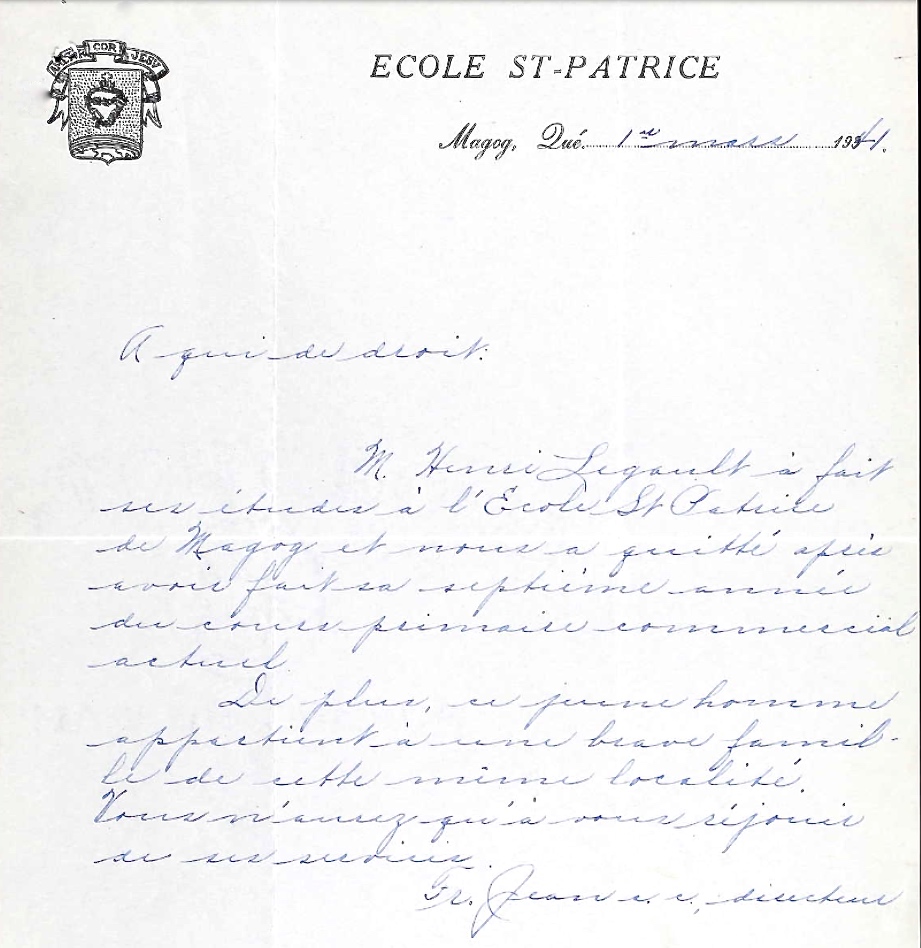 COR JESU
ECOLE ST-PATRICE
Magog, Qué. 1er mars 1941.
A qui de droit:
M. Henri Legault a fait
ses études à l'École St Patrice
de Magog et nous a quitté après
avoir fait sa septième année
du cours primaire commercial
actuel.
De plus, ce jeune homme
appartient à une brave famil-
le de cette même localité.
Vous n'aurez qu'à vous réjouir
de ses services.
Fr. Jean c. c., directeur